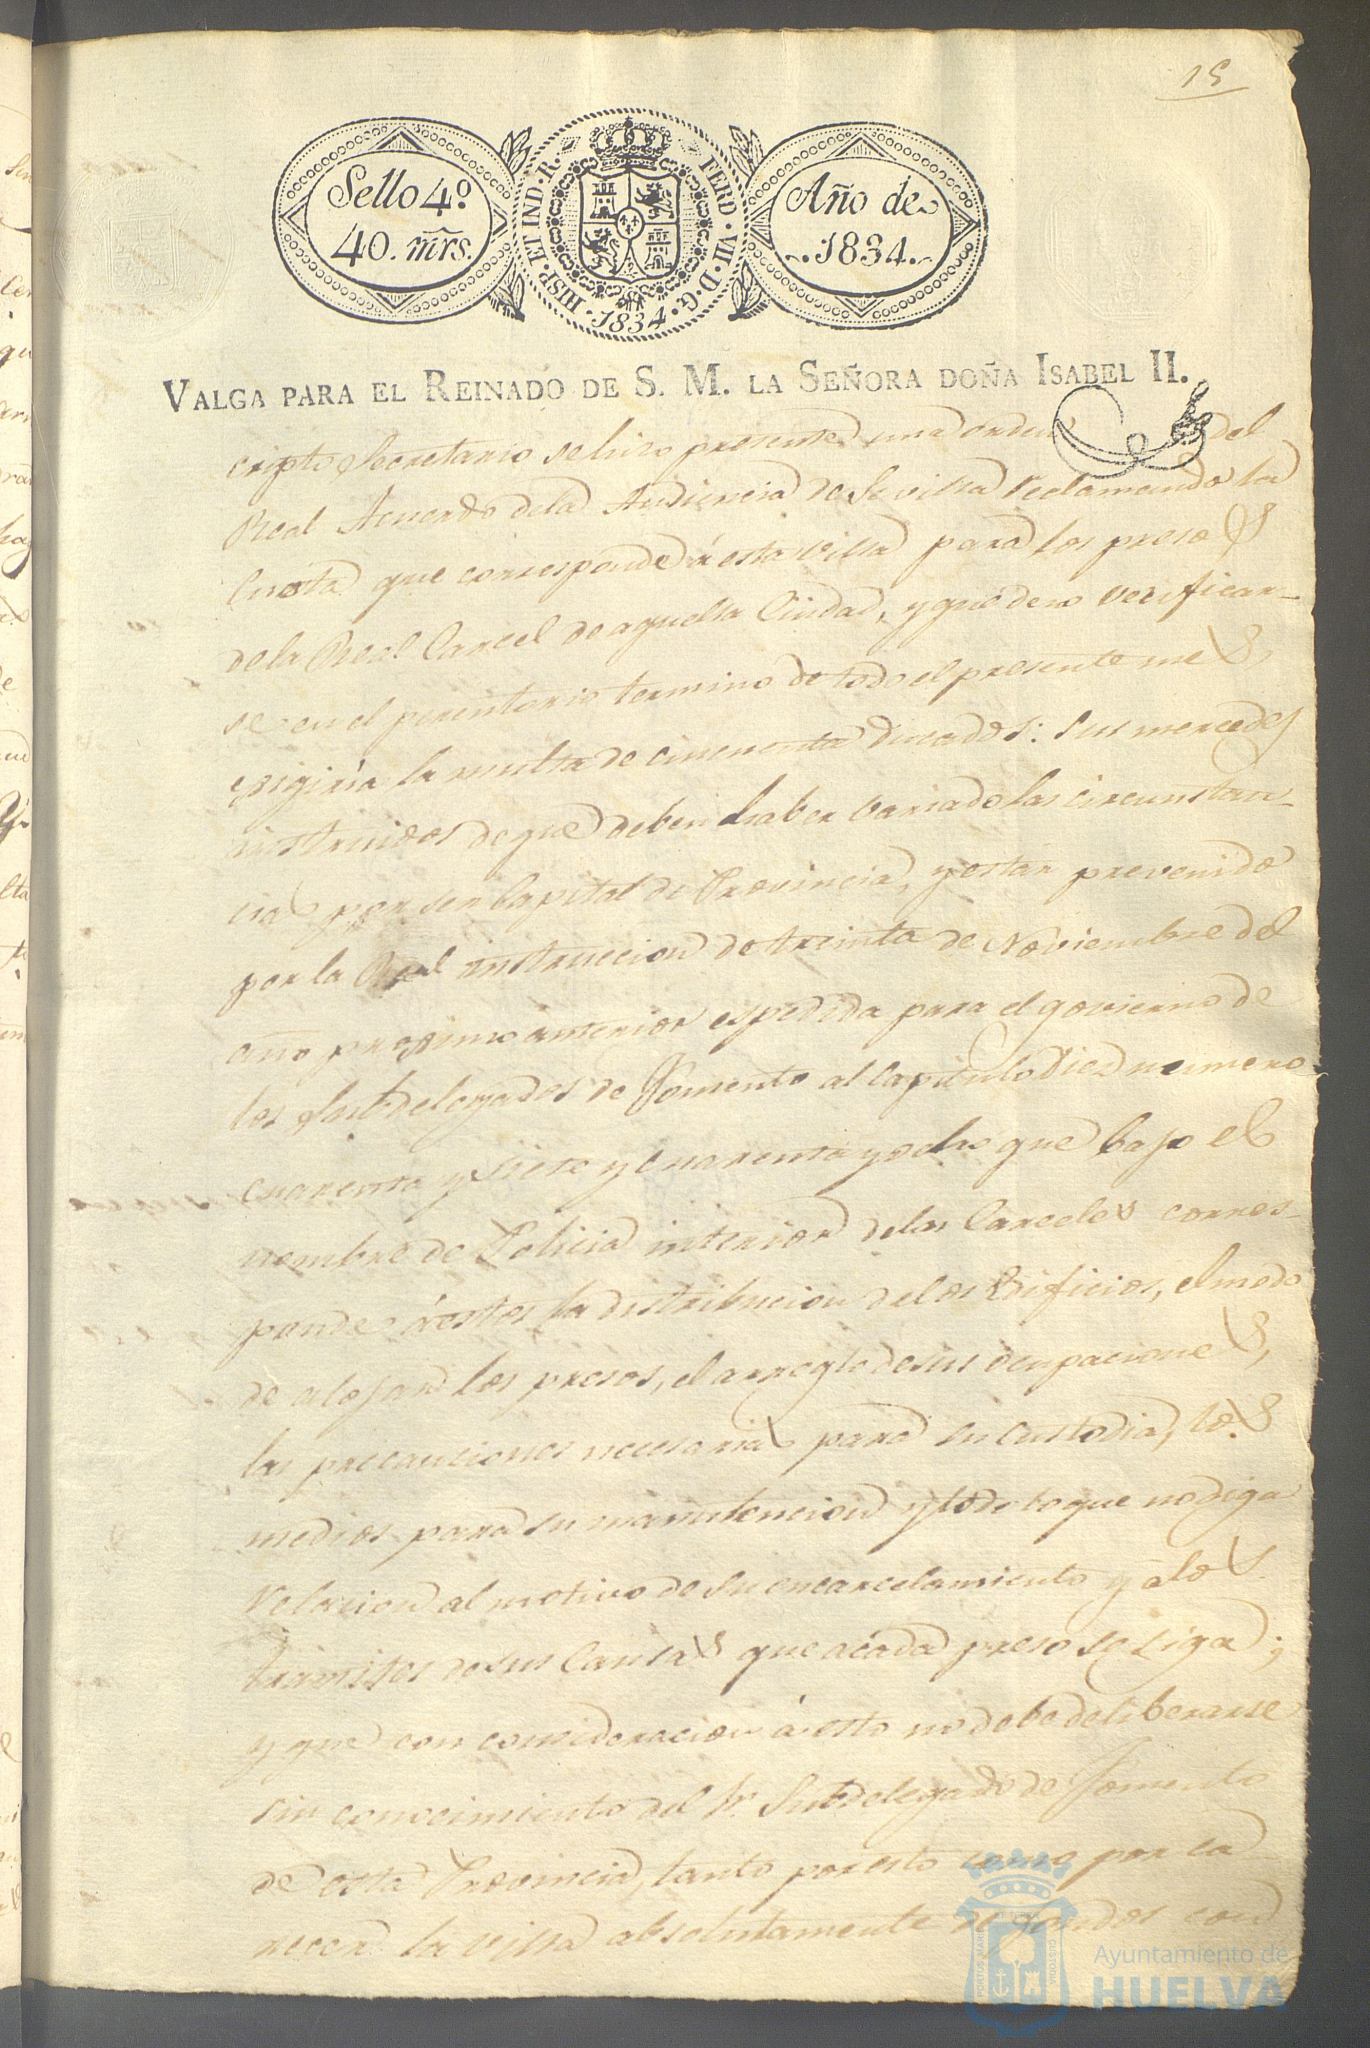 15
Sello 4º
40. mrs.
HISP. ET IND. R.
FERD. VII. D. G.
1834.
Año de
1834.
VALGA PARA EL REINADO DE S. M. LA SEÑORA DOÑA ISABEL II.
cripto Secretario se hizo presente una orden del
Real Acuerdo dela Audiencia de Sevilla reclamando la
Cuota que corresponde á esta villa para los presos
de la Real Carcel de aquella Ciudad, y que de no verificar-
se en el perentorio termino de todo el presente mes,
exigiria la multa de cincuenta ducados: sus mercedes
instruidos de que deben haber variado las circunstan-
cias por ser Capital de Provincia, y estar prevenido
por la Real instruccion de treinta de Noviembre del
año proximo anterior espedida para el govierno de
los Subdelegados de Fomento al capitulo Diez numero
cuarenta y siete y cuarenta y ocho que bajo el
nombre de Policia interior delas Carceles corres-
ponde á estos la distribucion delos Edificios, el modo
de alojar los presos, el arreglo de sus ocupaciones,
las precauciones necesarias para su custodia, los
medios para su manutencion y todo lo que no diga
relacion al motivo de su encarcelamiento y á los
tramites de sus Causas que á cada preso se siga;
y que con consideracion á esto no debe deliberarse
sin conocimiento del Sr. Subdelegado de Fomento
de esta Provincia, tanto por esto como por ca-
recer la villa absolutamente de fondos con
PORTUS MARIS
CUSTODIA
Ayuntamiento de
HUELVA